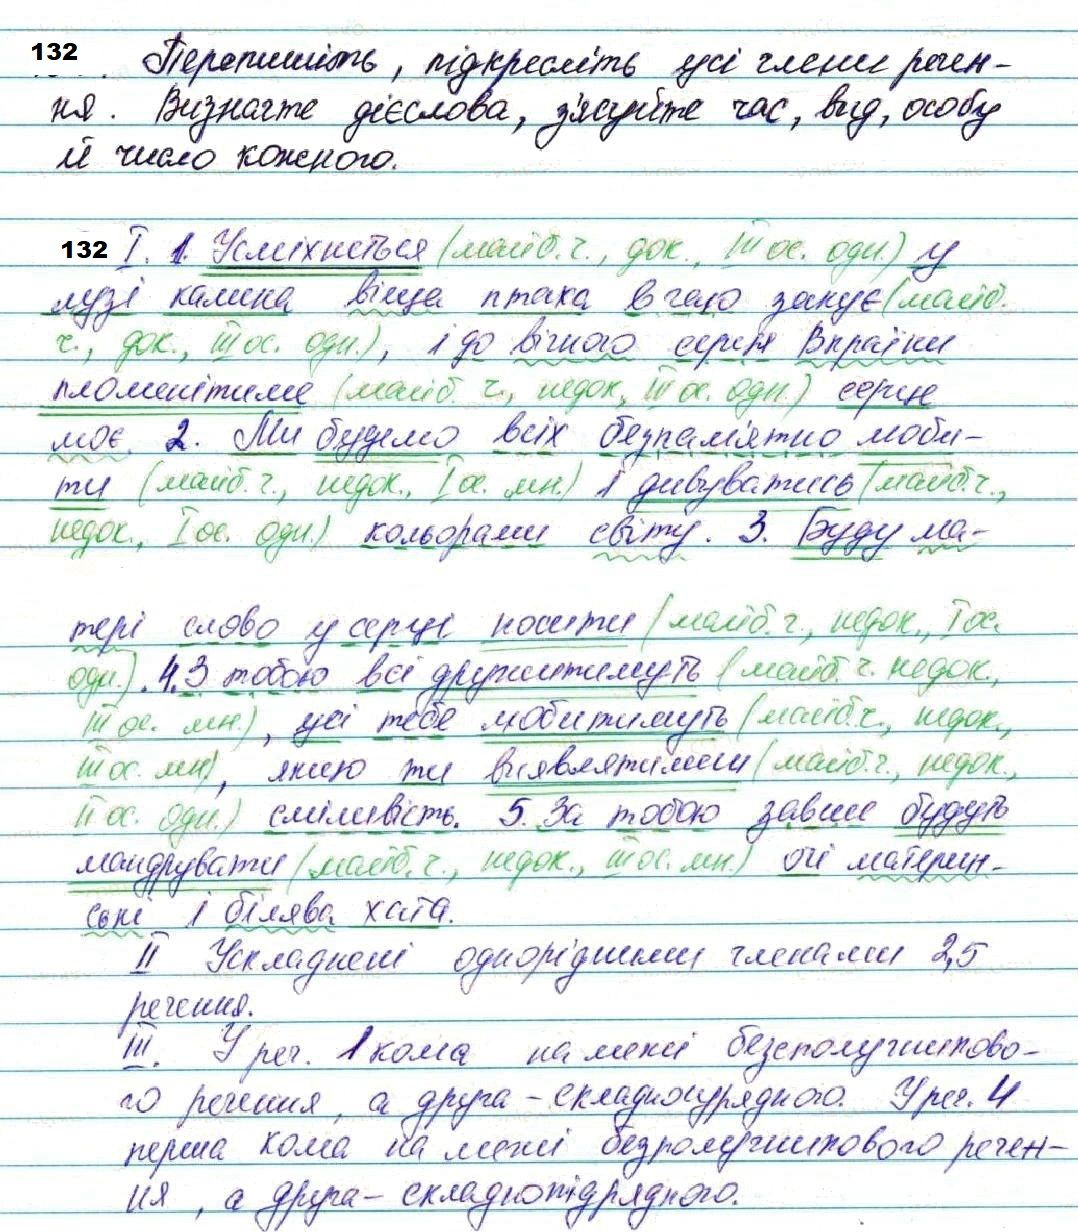 132 Перепишіть, підкресліть усі члени речен-
ня. Визначте дієслова, з'ясуйте час, вид, особу
й число кожного.
132 I. 1. Усміхнеться (майб. ч., док., III ос. одн.) у
лузі калина віща птаха в гаю закує (майб.
ч., док., III ос. одн.), і до вічного серця Вкраїни
пломенітиме (майб. ч., недок, III ос. одн.) серце
моє 2. Ми будемо всіх безпам'ятно люби-
ти (майб. ч., недок., I ос. мн.) і дивуватись (майб. ч.,
недок., I ос. одн.) кольорами світу. 3. Буду ма-
тері слово у серці носити (майб. ч., недок., I ос.
одн.). 4. З тобою всі дружитимуть (майб. ч. недок.,
III ос. мн.), усі тебе любитимуть (майб. ч., недок.,
III ос. мн), якщо ти виявлятимеш (майб. ч., недок.,
II ос. одн.) сміливість. 5. За тобою завше будуть
мандрувати (майб. ч., недок., III ос. мн.) очі материн-
ські і білява хата.
II Ускладнені однорідними членами 2,5
речення.
III. У реч. 1 кома на межі безсполучниково-
го речення, а друга - складносурядного. У реч. 4
перша кома на межі безполучникового речен-
ня, а друга - складнопідрядного.